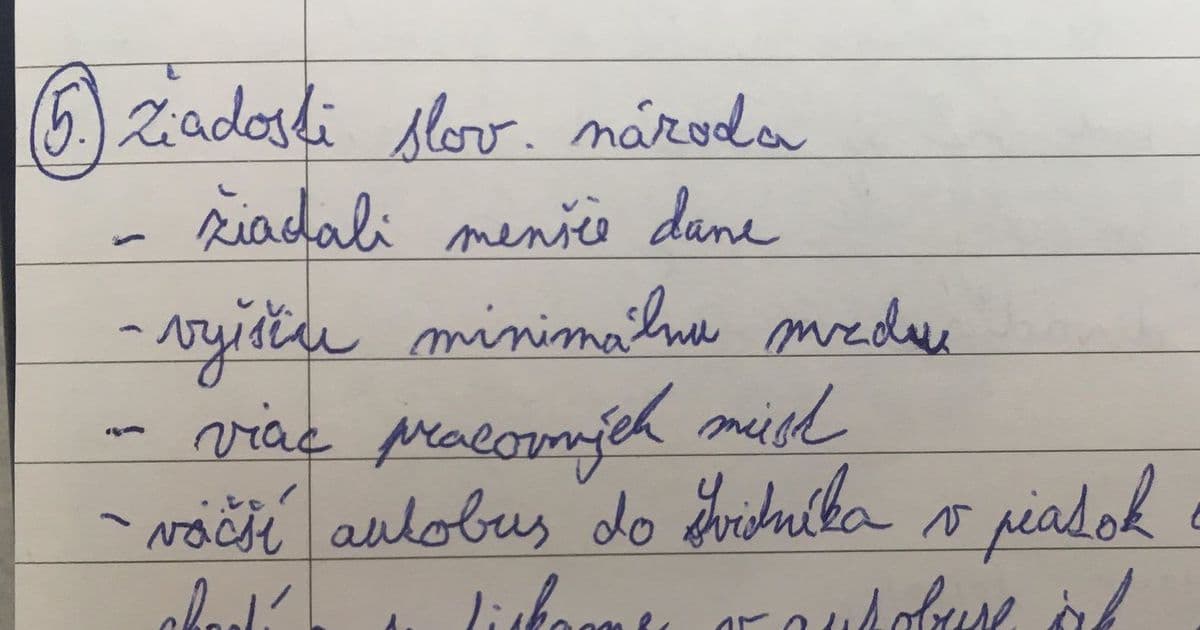 5. Žiadosti slov. národa
- žiadali menšie dane
- vyjšiu minimálnu mzdu
- viac pracovných miest
- väčší autobus do Svidníka v piatok
tiskame v autobuse ich